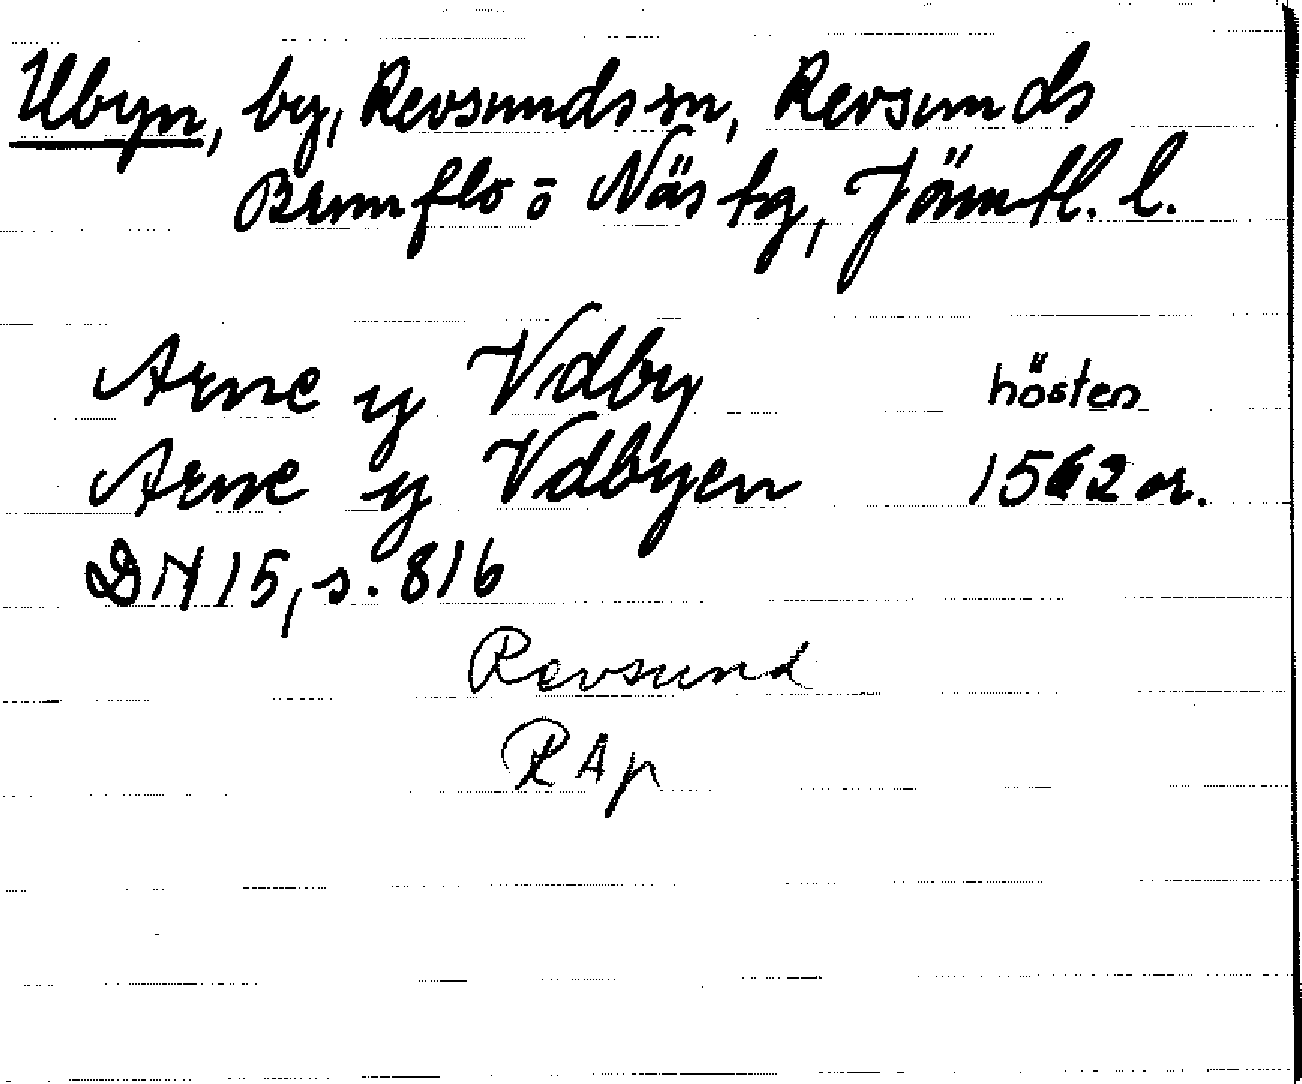 Ubyn, by, Revsunds sn, Revsunds
Brunflo o Näs tg, Jämtl. l.
Arne y Vdby hösten
Arne y Vdbyen 1562 or.
DN 15, s. 816
Revsund
RÅp